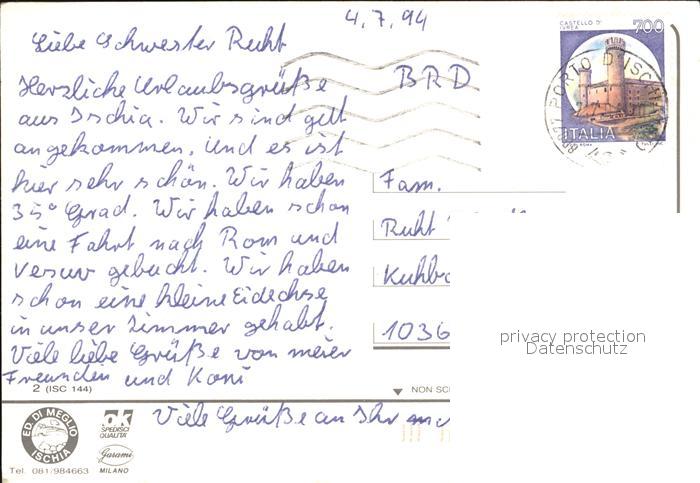 4.7.94
Liebe Schwester Ruht
Herzliche Urlaubsgrüße
aus Ischia. Wir sind gut
angekommen, und es ist
hier sehr schön. Wir haben
35° Grad. Wir haben schon
eine Fahrt nach Rom und
Vesuv gebucht. Wir haben
schon eine kleine Eidechse
in unser Zimmer gehabt.
Viele liebe Grüße von meier
Freunden und Koni
Viele Grüße an Ihr
BRD
Fam.
Ruht
1036
CASTELLO D'
IVREA
700
ITALIA
PORTO D'ISCHIA
2 (ISC 144)
NON SC
ED. DI MEGLIO
ISCHIA
Tel. 081/984663
ok
SPEDISCI
QUALITA'
Garami
MILANO
privacy protection
Datenschutz